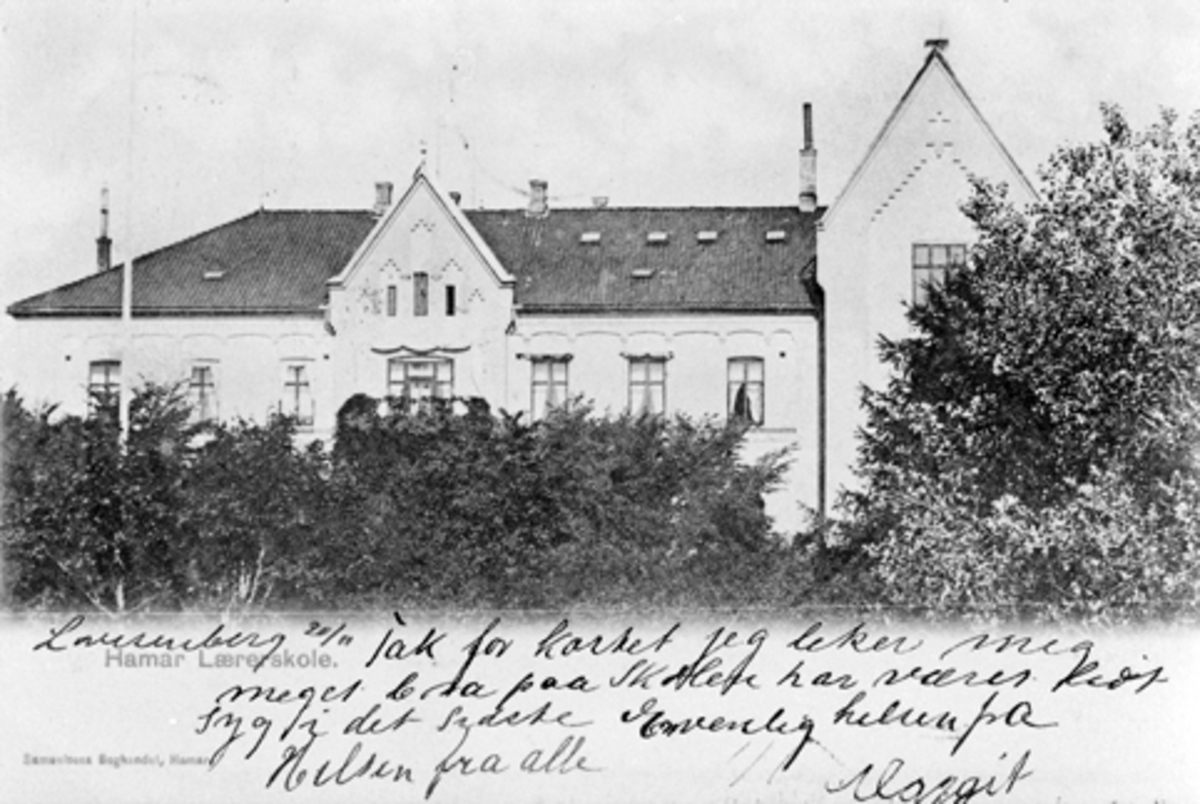 Lovisenberg 20/11 Tak for kortet jeg liker meg
Hamar Lærerskole.
meget bra paa Skolen har været lidt
syg i det sidste En venlig hilsen fra
Samuelsens Boghandel, Hamar.
Hilsen fra alle
Margit